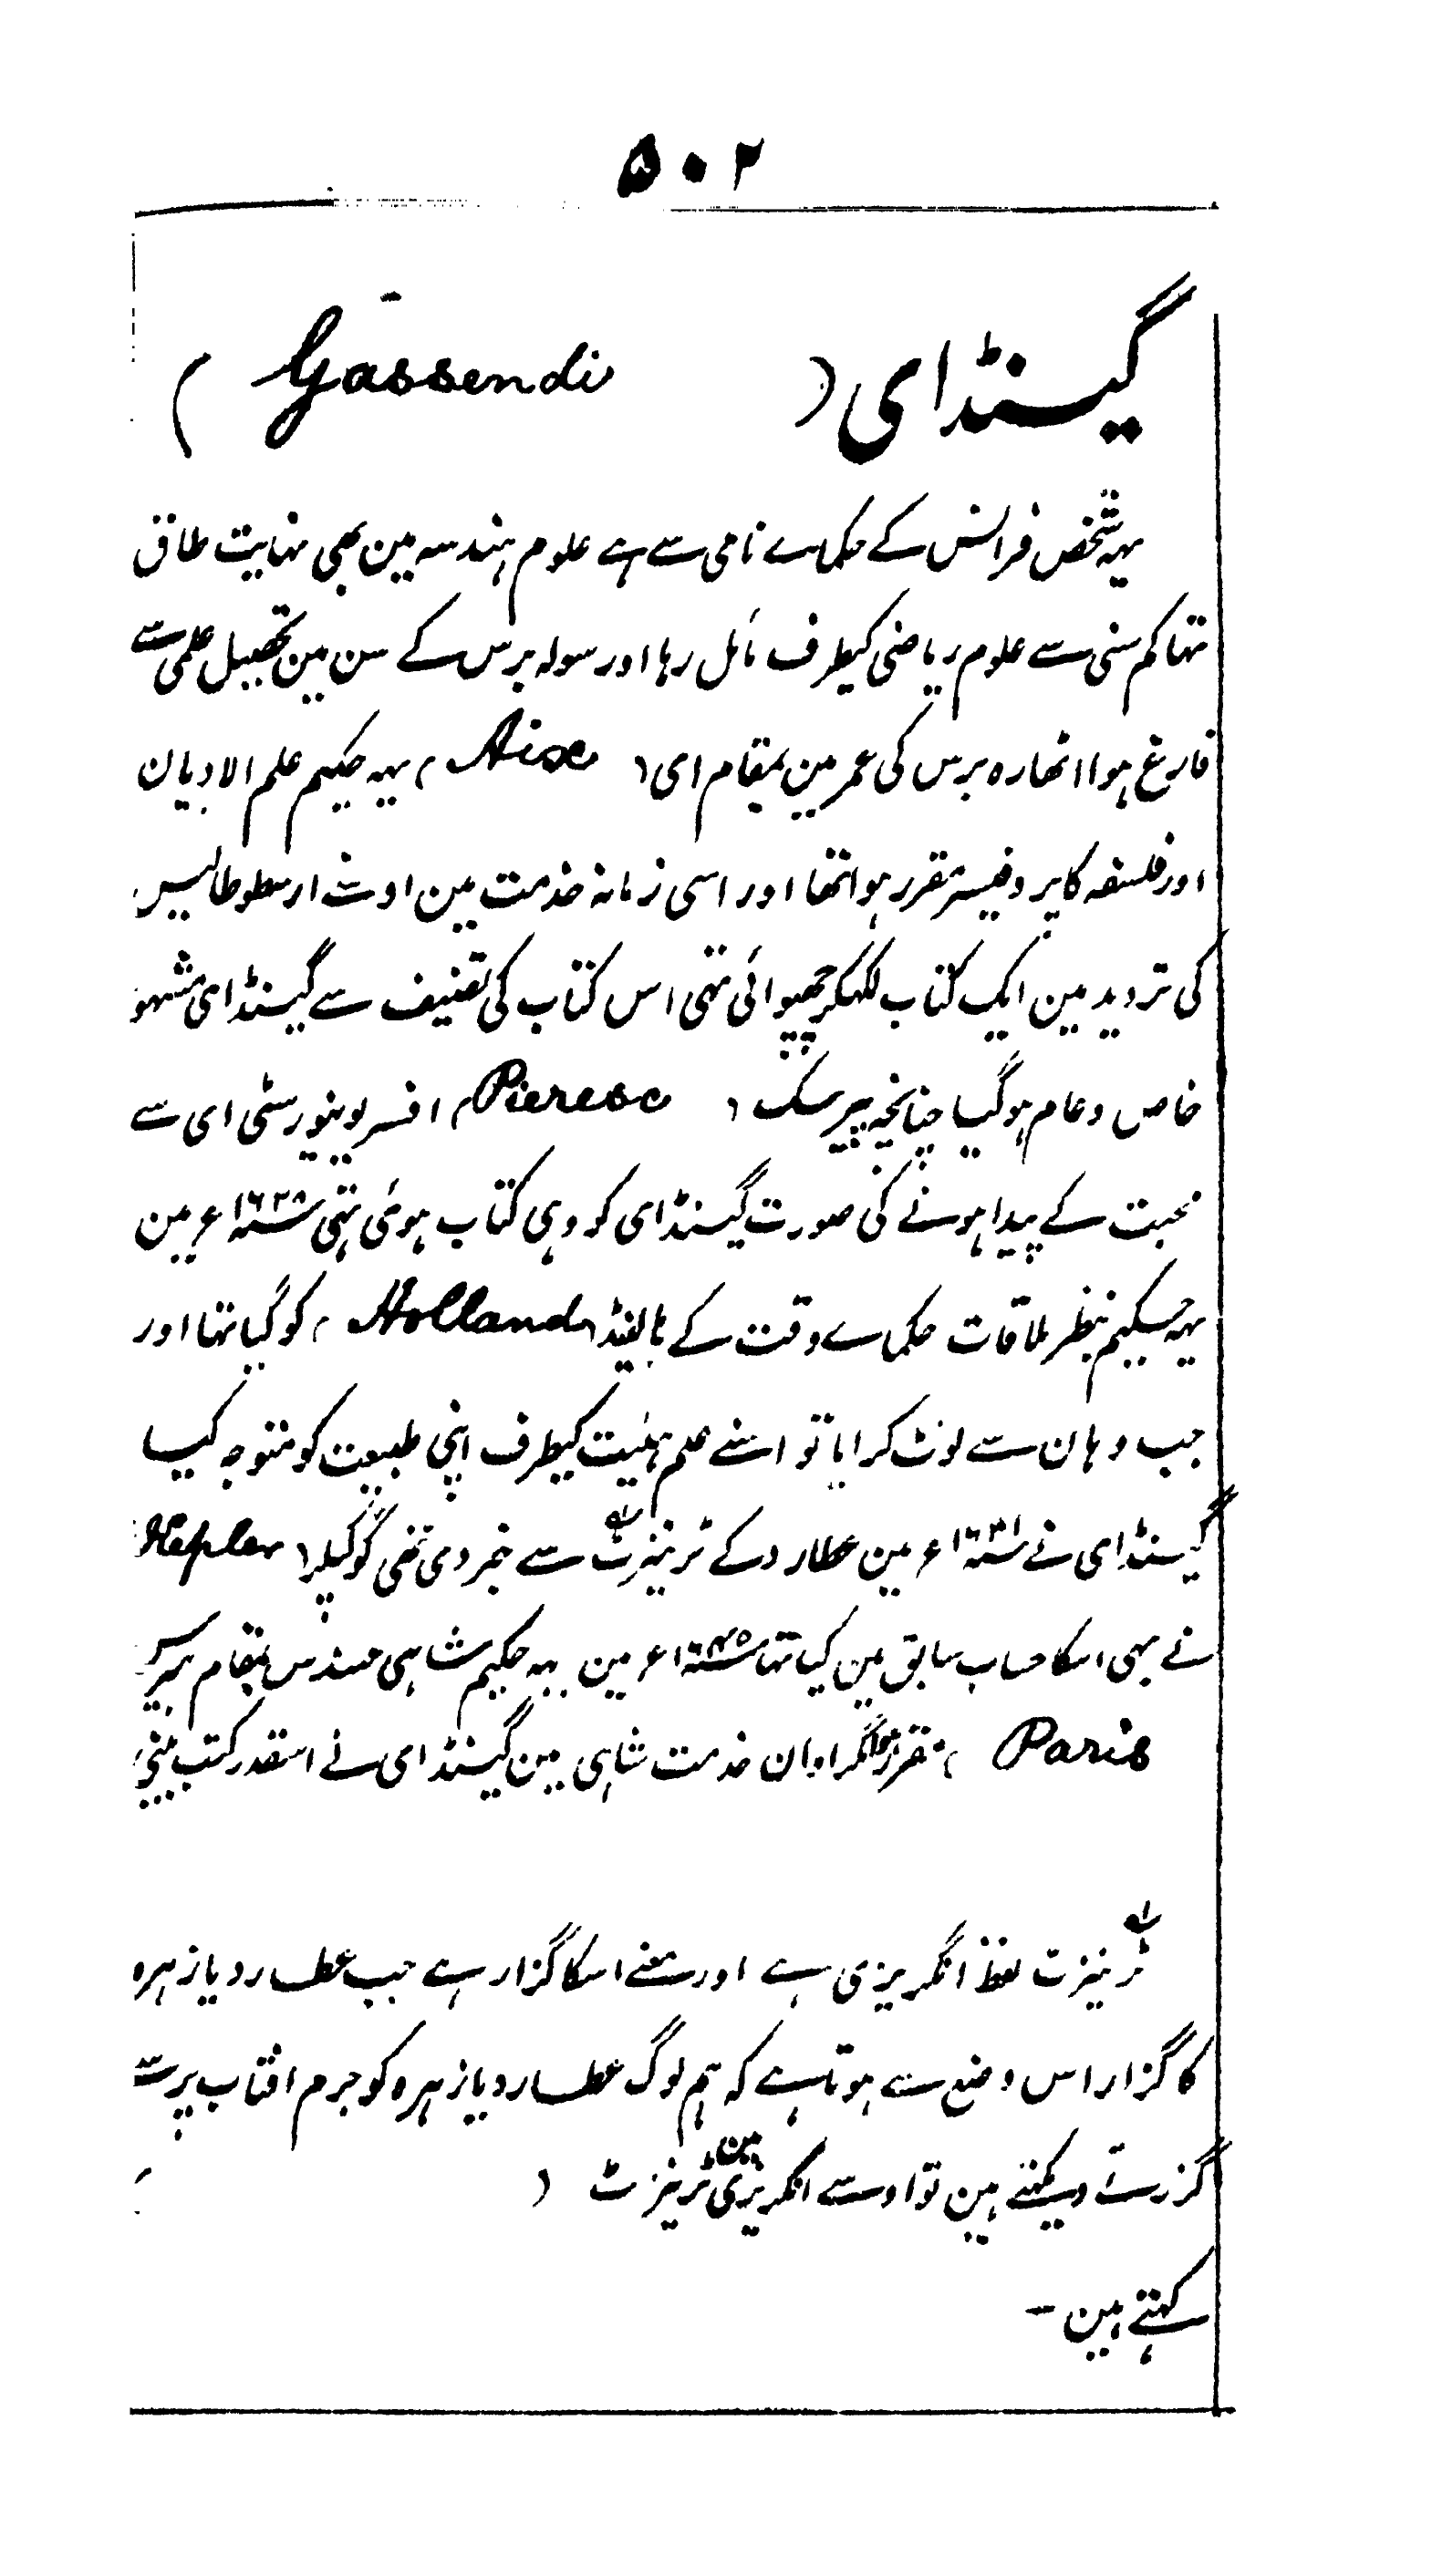 ۵۰۲
گیسنڈای ( Gassendi )
یہہ شخص فرانس کے حکماے نامی سے ہے علوم ہندسہ مین بھی نہایت طاق
تہا کم سنی سے علوم ریاضی کیطرف مائل رہا اور سولہ برس کے سن مین تحصیل علمی سے
فارغ ہوا اٹھارہ برس کی عمر مین بمقام ای ( Aix ) یہہ حکیم علم الادیان
اور فلسفہ کا پروفیسر مقرر ہوا تھا اور اسی زمانہ خدمت مین اوسنے ارسطوطالیس
کی تردید مین ایک کتاب لکہکر چھپوائی تہی اس کتاب کی تصنیف سے گیسنڈای مشہو
خاص و عام ہوگیا چنانچہ پیرسک ( Pieresc ) افسر یونیورسٹی ای سے
محبت کے پیدا ہونے کی صورت گیسنڈای کو وہی کتاب ہوئی تہی سنہ ۱۶۲۸ع مین
یہہ حکیم بنظر ملاقات حکماے وقت کے ہالینڈ ( Holland ) کو گیا تہا اور
جب وہان سے لوٹ کر ایا تو اسنے علم ہئیت کیطرف اپنی طبیعت کو متوجہ کیا
گیسنڈای نے سنہ ۱۶۳۱ع مین عطارد کے ٹرینزٹ سے خبر دی تھی گو کپلر ( Kepler
نے بہی اسکا حساب سابق مین کیا تہا سنہ ۱۶۴۵ع مین یہہ حکیم شاہی مہندس بمقام پیرس
Paris ) مقرر ہوا مگر اوان خدمت شاہی مین گیسنڈای نے اسقدر کتب بینی
لہ ٹرینزٹ لفظ انگریزی ہے اور معنے اسکا گزار ہے جب عطارد یا زہرہ
کا گزار اس وضع سے ہوتا ہے کہ ہم لوگ عطارد یا زہرہ کو جرم افتاب پر سے
گزرتا دیکہتے ہین تو اوسے انگریزی مین ٹرینزٹ ( )
کہتے ہین -